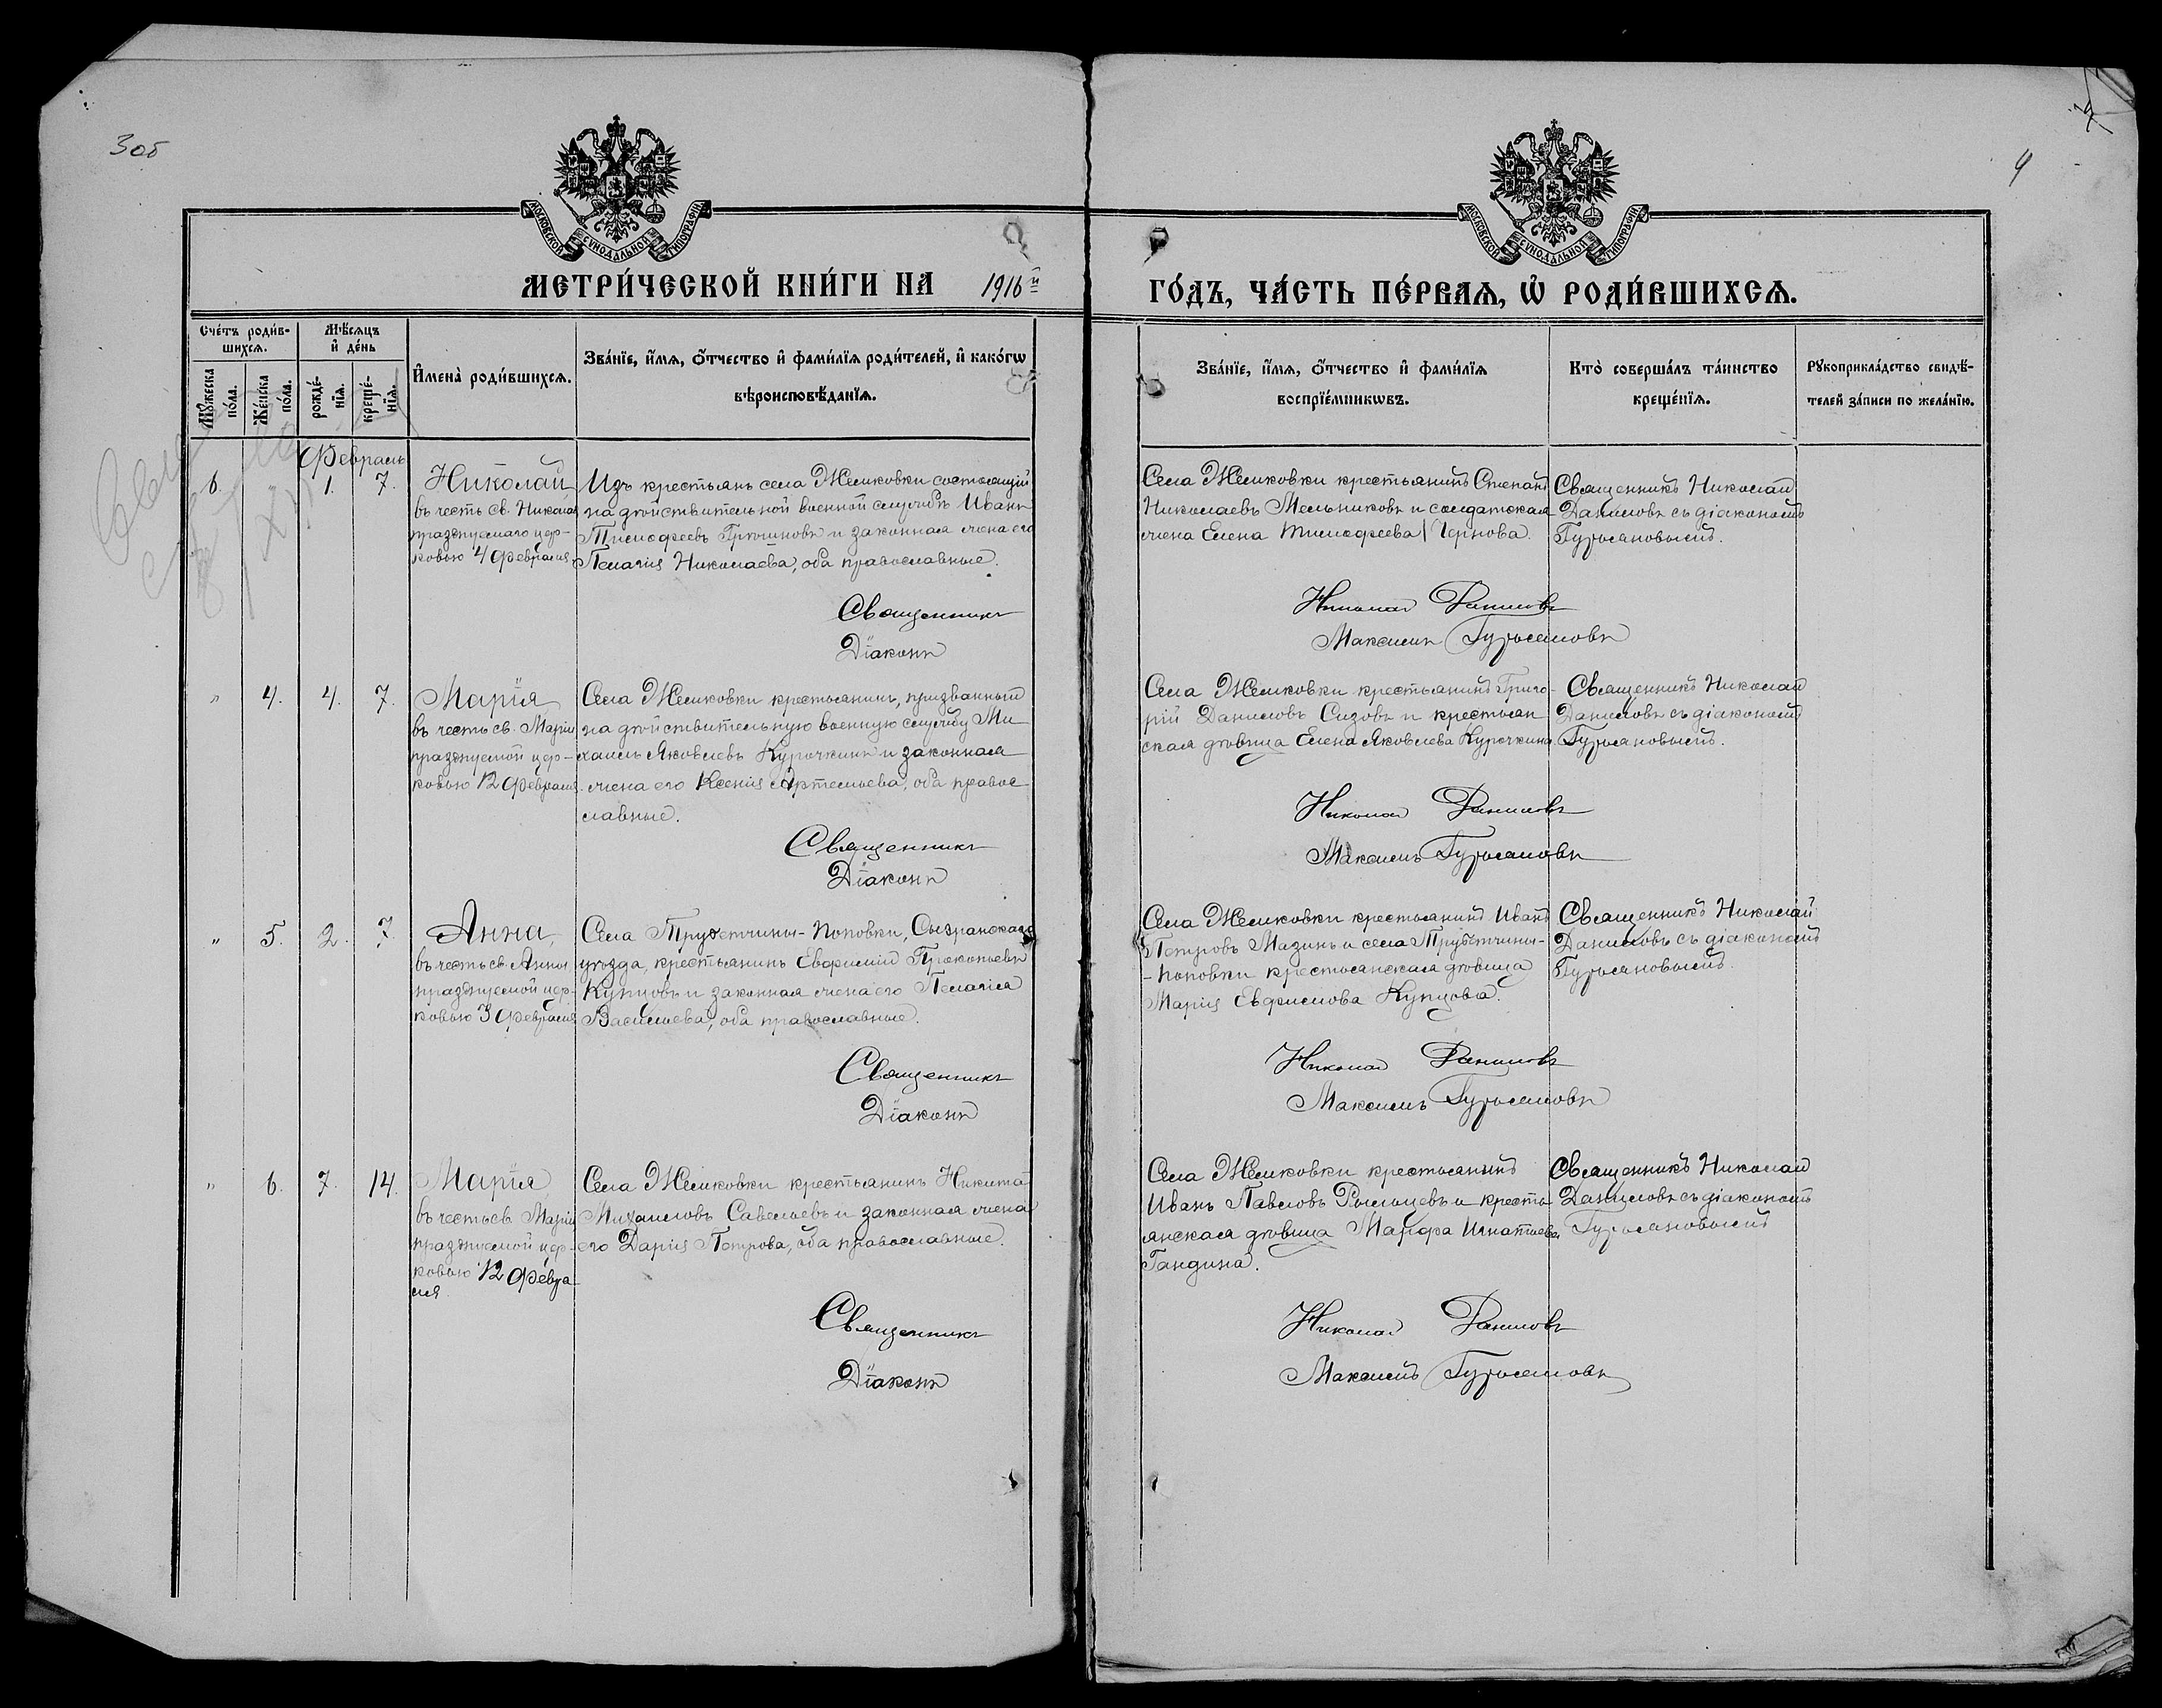 3об
4
МОСКОВСКОЙ СѴНОДАЛЬНОЙ ТИПОГРАФІИ
МОСКОВСКОЙ СѴНОДАЛЬНОЙ ТИПОГРАФІИ
МЕТРИ́ЧЕСКОЙ КНИ́ГИ НА 1916й ГО́ДЪ, ЧА́СТЬ ПЕ́РВАЯ, Ѡ҆ РОДИ́ВШИХСЯ.
Сче́тъ роди́в-
шихся.
Мꙋ́жеска
по́ла.
Же́нска
по́ла.
Мѣ́сяцъ
и҆ де́нь
рожде́-
нїя.
креще́-
нїя.
И҆мена̀ роди́вшихся.
Зва́нїе, и҆́мя, ѻ҆́тчество и҆ фами́лїя роди́телей, и҆ како́гѡ
вѣроисповѣ́данїя.
Зва́нїе, и҆́мя, ѻ҆́тчество и҆ фами́лїя
воспрїе́мникѡвъ.
Кто̀ соверша́лъ та́инство
креще́нїя.
Рꙋкоприкла́дство свидѣ́-
телей за́писи по жела́нїю.
Февраль
6. " 1. 7.
Николай
въ честь св. Николая
празднуемаго цер-
ковью 4 февраля
Изъ крестьянъ села Жемковки состоящій
на дѣйствительной военной службѣ Иванъ
Тимофеевъ и законная жена его
Пелагія Николаева, оба православные.
Священникъ
Діаконъ
Села Жемковки крестьянинъ Степанъ
Николаевъ Мельниковъ и солдатская
жена Елена Тимофеева Чернова.
Священникъ Николай
Даниловъ съ діакономъ
Гурьяновымъ.
Николай Даниловъ
Максимъ Гурьяновъ
" 4. 4. 7.
Марія
въ честь св. Маріи
празднуемой цер-
ковью 12 февраля
Села Жемковки крестьянинъ, призванный
на дѣйствительную военную службу Ми-
хаилъ Яковлевъ Курочкинъ и законная
жена его Ксенія Артемьева, оба правос-
лавные.
Священникъ
Діаконъ
Села Жемковки крестьянинъ Григо-
рій Даниловъ Сизовъ и крестьян
ская дѣвица Елена Яковлева Курочкина.
Священникъ Николай
Даниловъ съ діакономъ
Гурьяновымъ.
Николай Даниловъ
Максимъ Гурьяновъ
" 5. 2. 7.
Анна,
въ честь св. Анны
празднуемой цер-
ковью 3 февраля
Села Трубетчины-Поповки, Сызранскаго
уѣзда, крестьянинъ Евфимій Прокопьевъ
Купцовъ и законная жена его Пелагія
Васильева, оба православные.
Священникъ
Діаконъ
Села Жемковки крестьянинъ Иванъ
Петровъ Мазинъ и села Трубетчины-
-Поповки крестьянская дѣвица
Марія Евфимова Купцова.
Священникъ Николай
Даниловъ съ діакономъ
Гурьяновымъ.
Николай Даниловъ
Максимъ Гурьяновъ
" 6. 7. 14.
Марія
въ честь св. Маріи
празднуемой цер-
ковью 12 февра-
ля
Села Жемковки крестьянинъ Никита
Михаиловъ Савельевъ и законная жена
его Дарія Петрова, оба православные.
Священникъ
Діаконъ
Села Жемковки крестьянинъ
Иванъ Павловъ и кресть-
янская дѣвица Марфа Игнатьева
Гандина.
Священникъ Николай
Даниловъ съ діакономъ
Гурьяновымъ
Николай Даниловъ
Максимъ Гурьяновъ